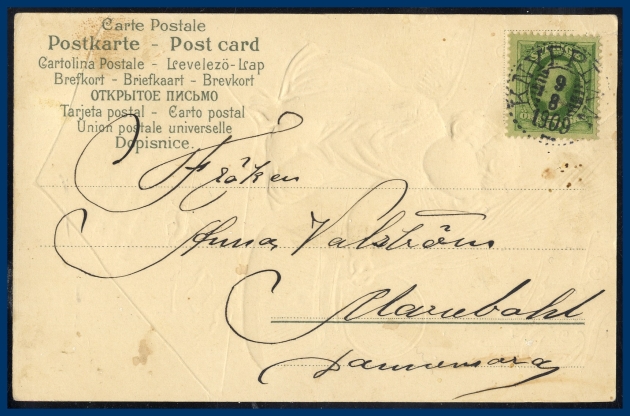 Carte Postale
Postkarte - Post card
Cartolina Postale - Levelező-Lap
Brefkort - Briefkaart - Brevkort
ОТКРЫТОЕ ПИСЬМО
Tarjeta postal - Carto postal
Union postale universelle
Dopisnice.
9
8
1909
Fröken
Anna Valström
Dannemora